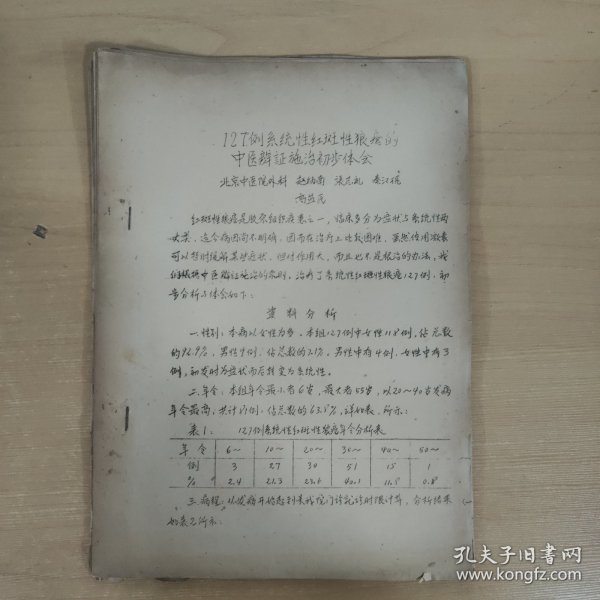 127例系统性红斑性狼疮的
中医辨证施治初步体会
北京中医院外科 赵炳南 张志礼 秦汉琨
红斑性狼疮是胶原组织疾患之一，临床多分为症状与系统性两
大类，这个病因尚不明确，因而在治疗上比较困难，虽然使用激素
可以暂时缓解某些症状，但付作用大，而且也不是根治的办法，我
们根据中医辨证施治的原则，治疗了系统性红斑性狼疮127例，初
步分析与体会如下：
资料分析
一、性别：本病以女性为多，本组127例中女性118例，佔总数
的92.9%，男性9例，佔总数的7.1%，男性中有4例，女性中有3
例，初发时为症状而后转变为系统性。
二、年令：本组年令最小者6岁，最大者55岁，以20～40岁发病
年令最高，共计81例，佔总数的63.8%，详如表1所示：
表1： 127例系统性红斑性狼疮年令分析表
年令 6～ 10～ 20～ 30～ 40～ 50～
例 3 27 30 51 15 1
% 2.4 21.3 23.6 40.1 11.8 0.8
三、病程：从发病开始起到来我院门诊就诊时限计算，分析结果
如表2所示：
孔夫子旧书网
www.kongfz.com